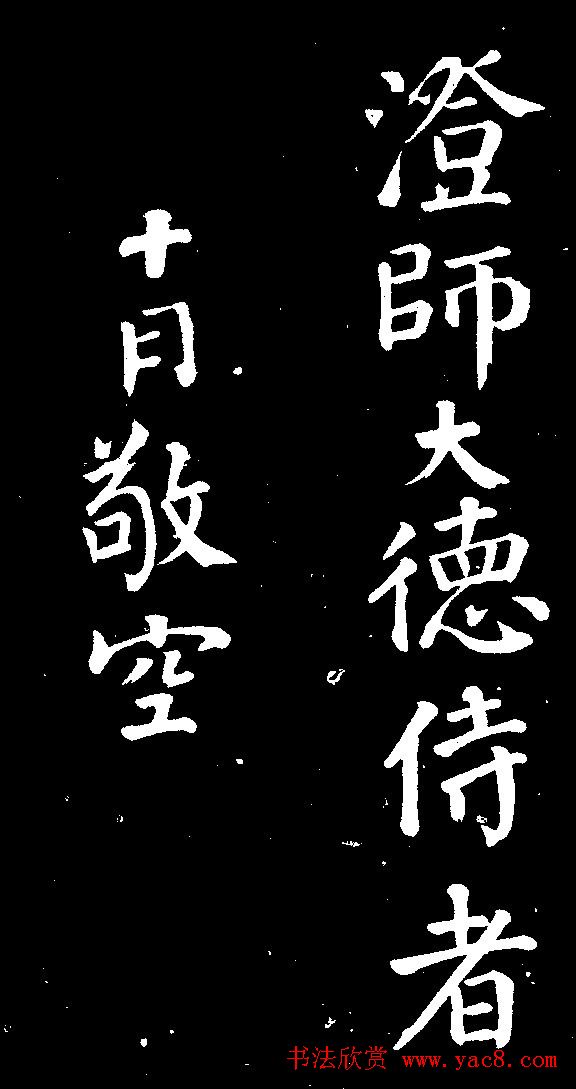 澄師大德侍者
十月敬空
书法欣赏 www.yac8.com